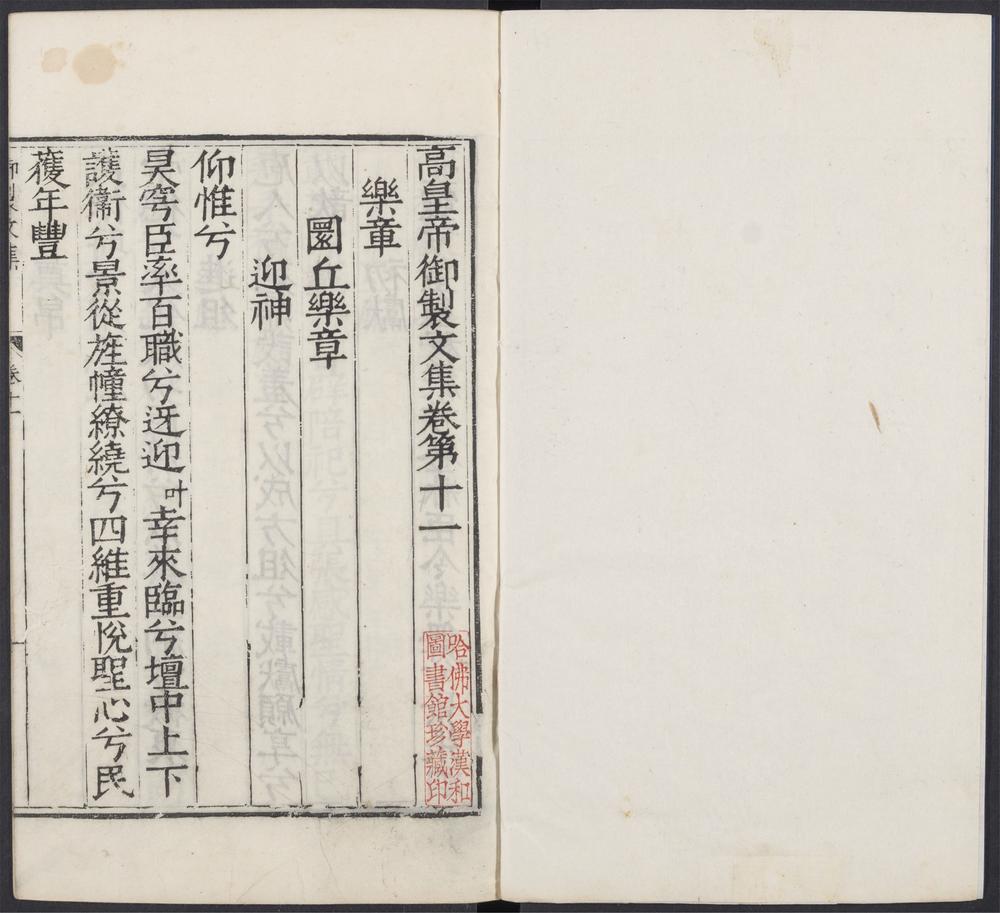 高皇帝御製文集卷第十一
樂章
圜丘樂章
迎神
仰惟兮
昊穹臣率百職兮迓迎叶幸來臨兮壇中上下
護衞兮景從旌幢繚繞兮四維重悅聖心兮民
獲年豐
御製文集 卷十一 一
哈佛大學漢和
圖書館珍藏印